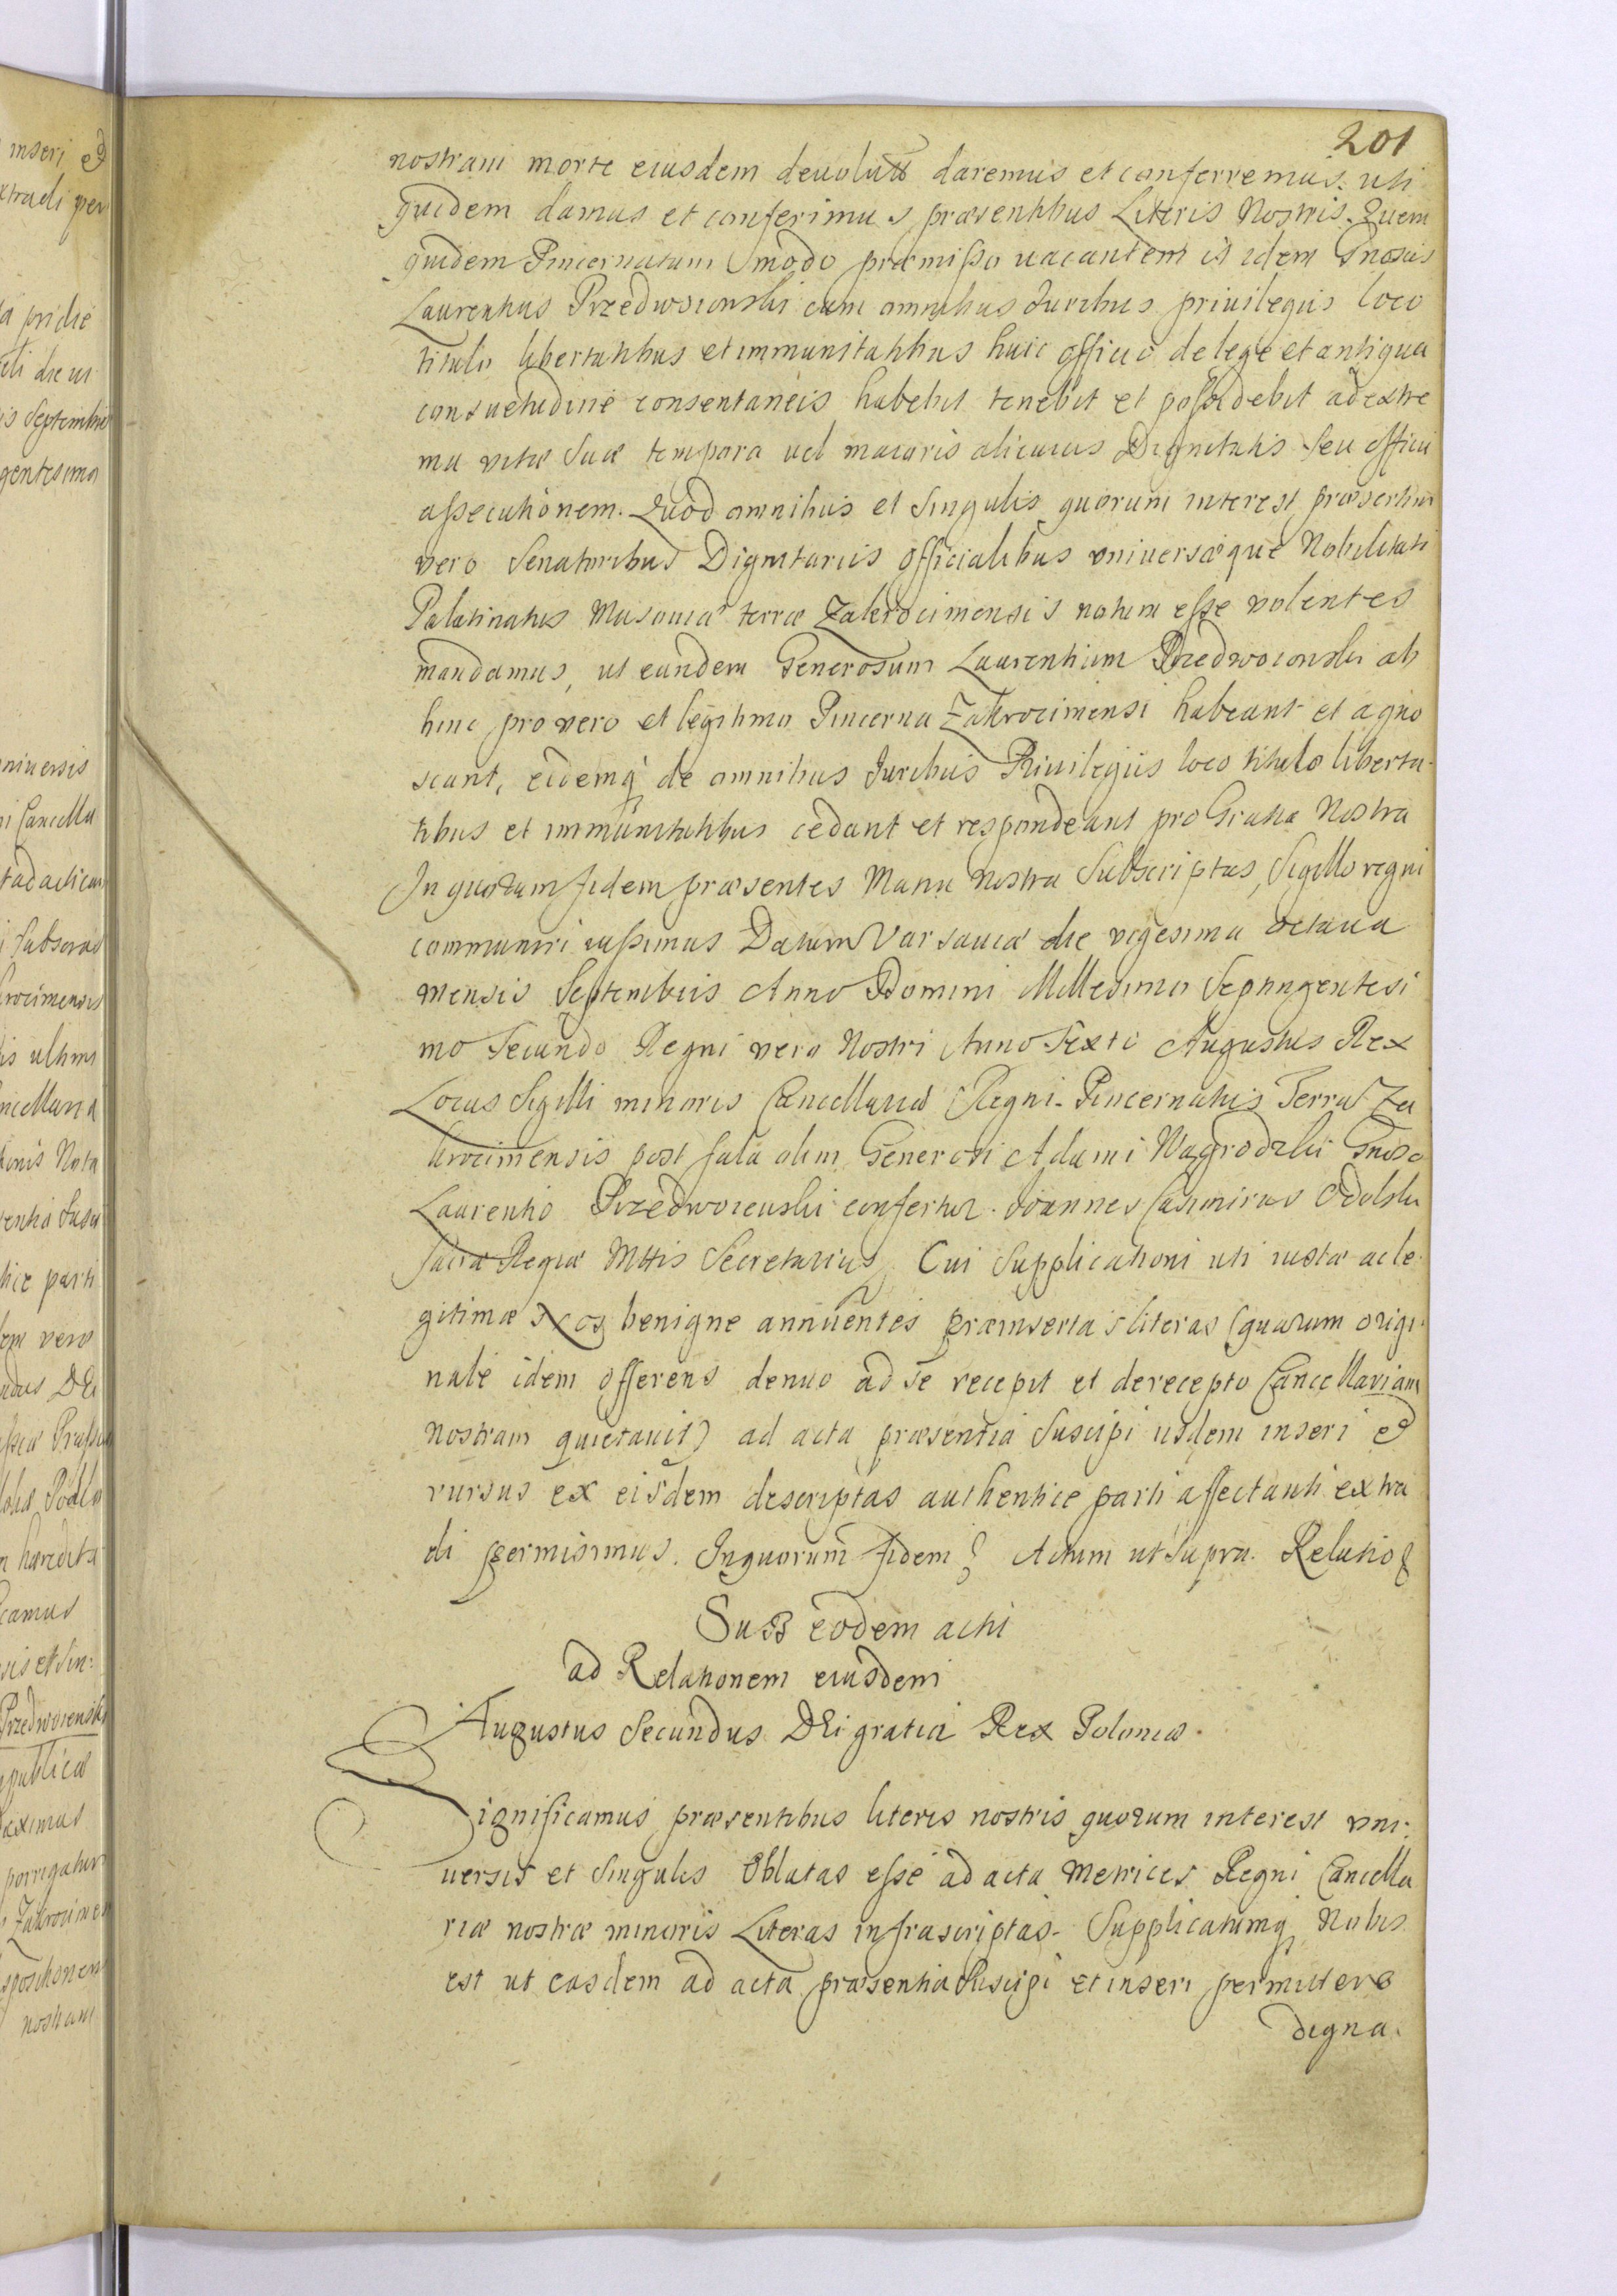 201
nostram morte eiusdem devolutū daremus et conferremus. uti
quidem damus et conferimus præsentibus Literis Nostris. Quem
quidem Pincernatum modo præmisso vacantem is idem Gnosus
Laurentius Przedwoiowski cum omnibus Juribus privilegijs loco
titulo libertatibus et immunitatibus huic officio de lege et antiqua
consuetudine consentaneis habebit tenebit et possidebit ad extre
ma vitæ suæ tempora vel maioris alicuius Dignitatis seu officii
assecutionem. Quod omnibus et singulis quorum interest præsertim
vero Senatoribus Dignitariis Officialibus universæque Nobilitati
Palatinatus Masoviæ terræ Zakrocimensis notum esse volentes
mandamus, ut eundem Generosum Laurentium Przedwoiowski ab
hinc pro vero et legitimo Pincerna Zakrocimensi habeant et agno
scant, eidemq de omnibus Juribus Privilegijs loco titulo liberta-
tibus et immunitatibus cedant et respondeant pro Gratia Nostra
In quorum fidem præsentes Manu Nostra Subscriptas, Sigillo regni
communiri iussimus Datum Varsaviæ die vigesima octava
mensis Septembris Anno Domini Millesimo Septingentesi
mo Secundo Regni vero Nostri Anno Sexto Augustus Rex
Locus Sigilli minoris Cancellariæ Regni. Pincernatus Terræ Za
krocimensis post fata olim Generosi Adami Wagrodzki Gnoso
Laurentio Przedwoiewski confertur. Joannes Casimirus Odolski
Sacræ Regiæ Mttis Secretarius. Cui Supplicationi uti iustæ ac le
gitimæ Nos benigne annuentes præinsertas literas (quarum origi
nale idem offerens denuo ad se recepit et de recepto Cancellariam
nostram quietavit) ad acta præsentia Suscipi iisdem inseri et
rursus ex eisdem descriptas authentice parti affectanti extra
di permisimus. In quorum fidem Actum ut supra. Relatio
Sub eodem actu
ad Relationem eiusdem
Augustus Secundus DEi gratia Rex Poloniæ.
Significamus præsentibus literis nostris quorum interest uni:
versis et singulis Oblatas esse ad acta Metrices Regni Cancella
riæ nostræ minoris Literas infrascriptas. Supplicatumq Nobis
est ut easdem ad acta præsentia Suscipi et inseri permittere
digna.